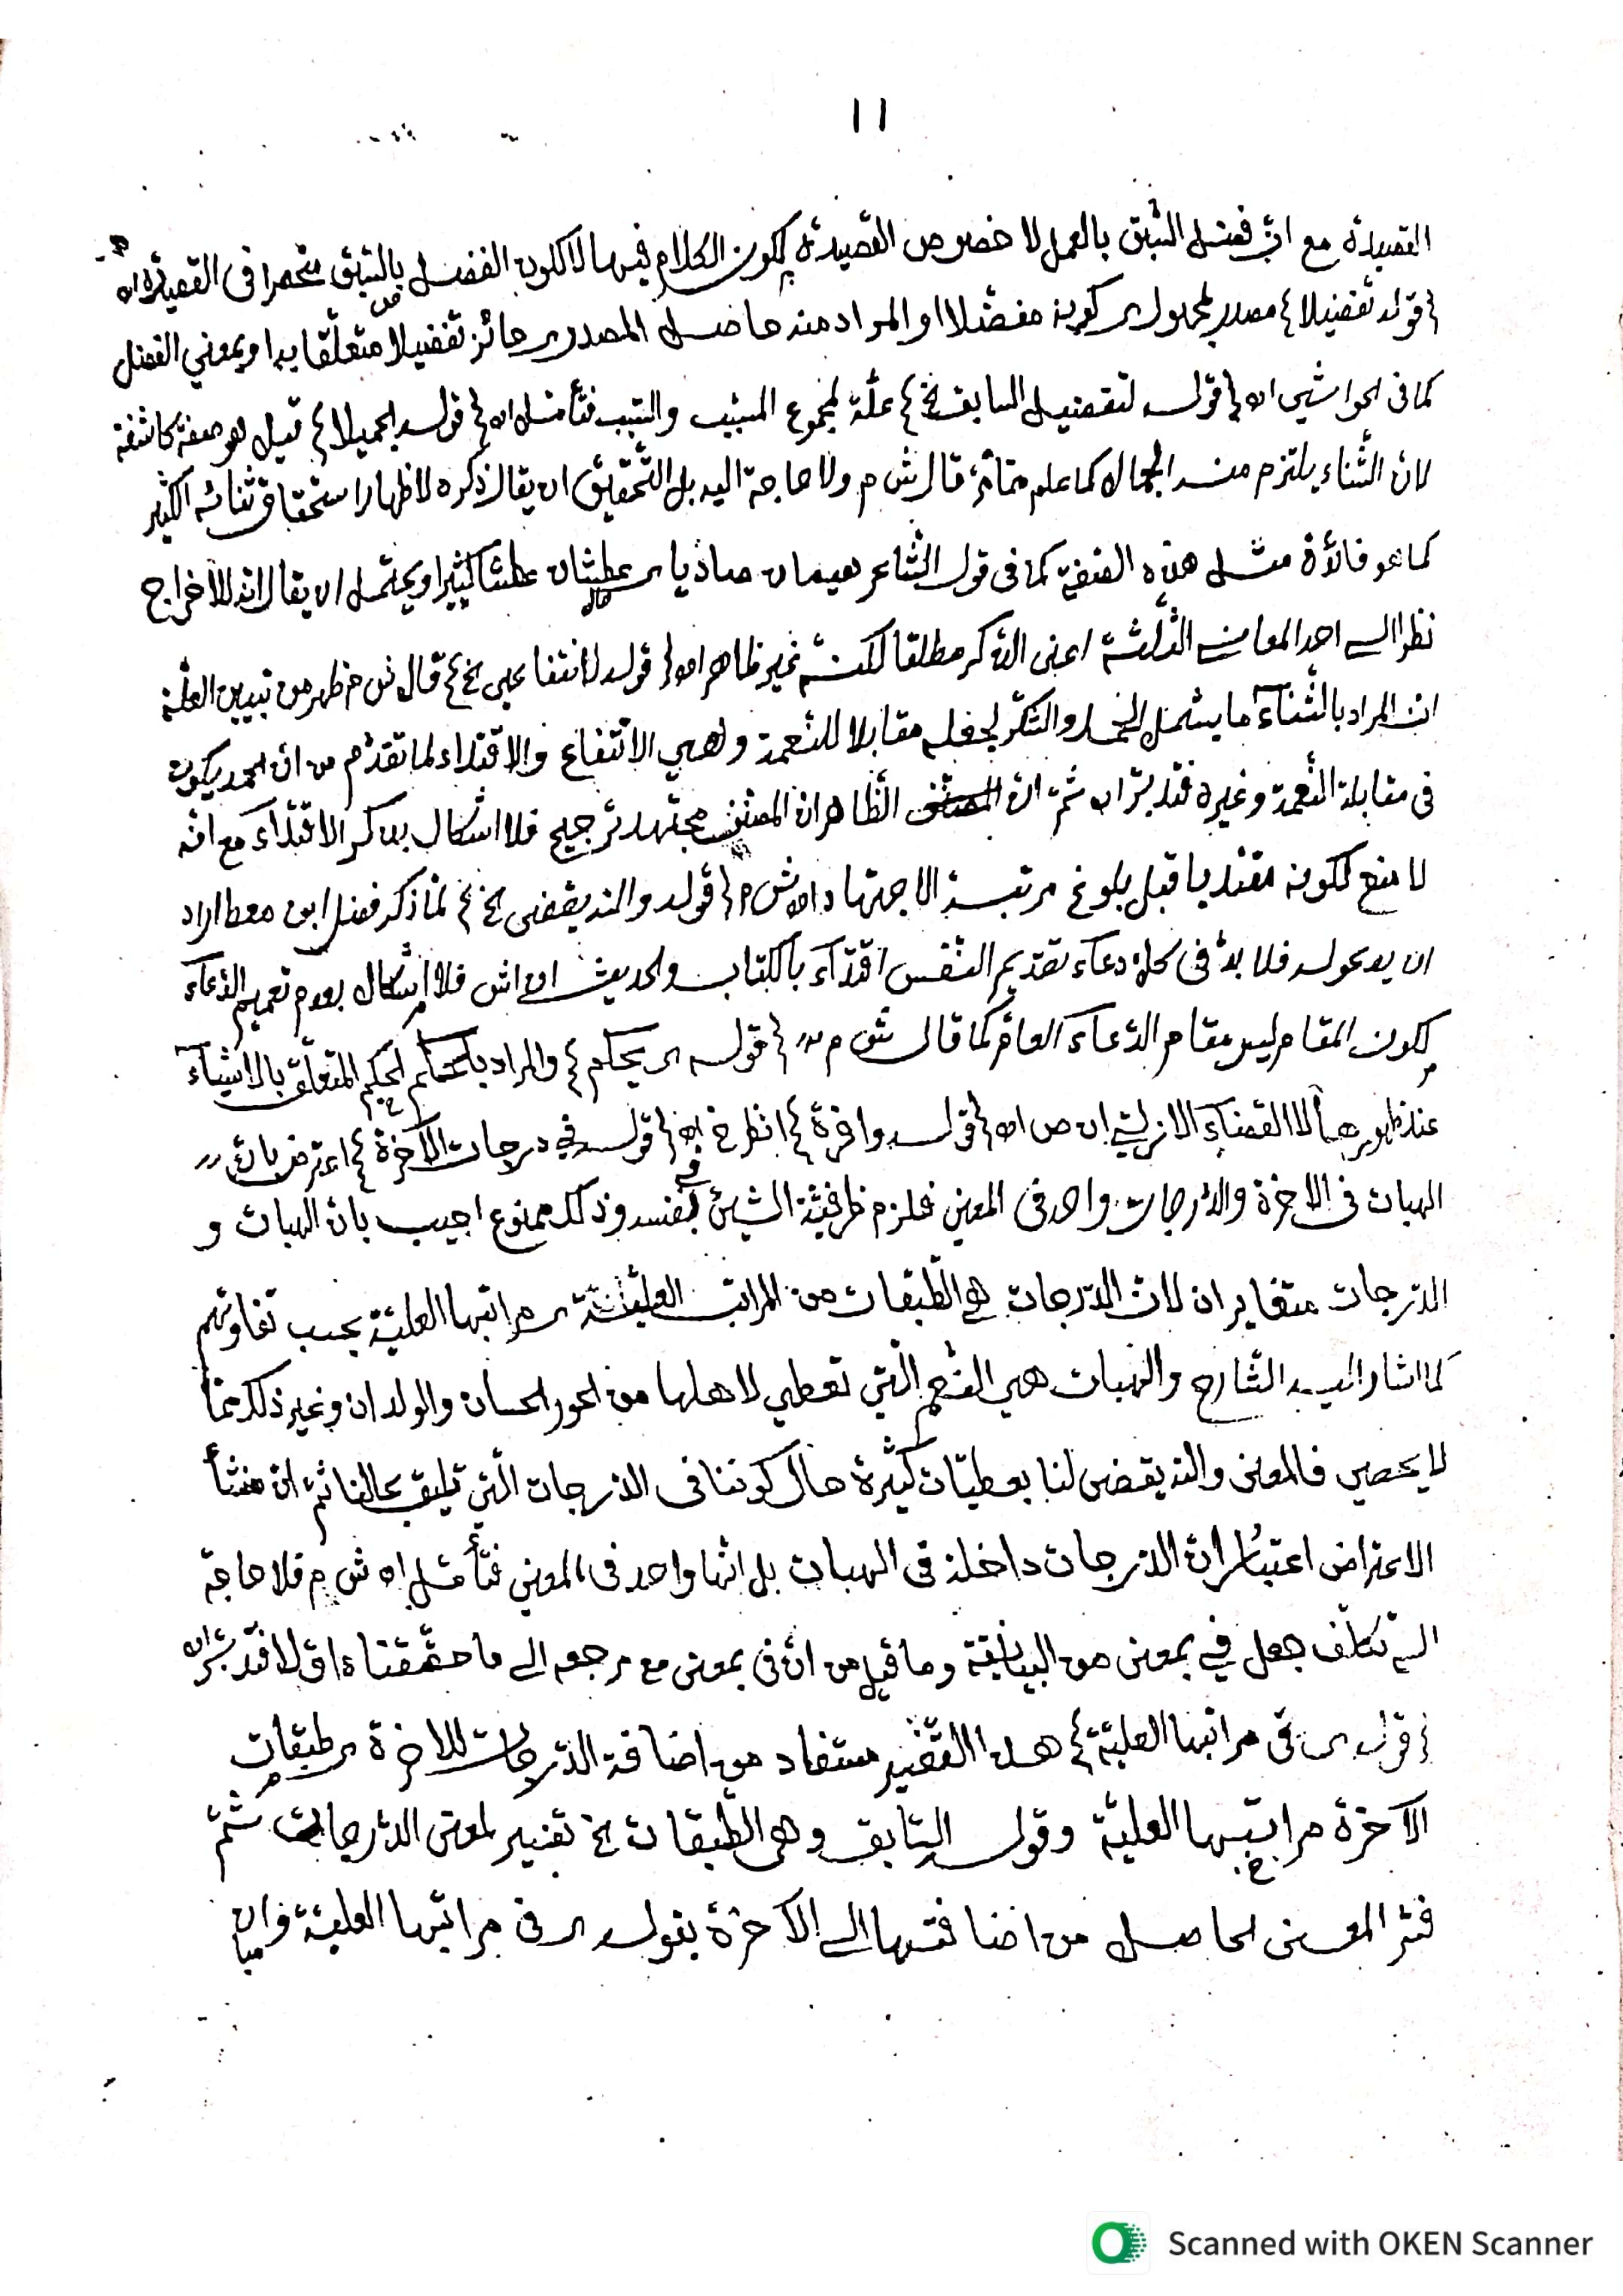 ١١
القصيدة مع انّ فضل السّبق بالعمل لا خصوص القصيدة لكون الكلام فيها لا لكون الفضل بالسّبق منحصرا فى القصيدة اه
{قوله تفضيلا} مصدر المجهول اى كونه مفضّلا او المراد منه حاصل المصدر اى حائز تفضيلا متعلّقا به او بمعني الفضل
كما فى الحواشى اه {قوله لتفضيل السابق الخ} علّة لمجموع المسبّب والسّبب فتأمّل اه {قوله الجميلا} قيل هو صفة كاشفة
لانّ الثّناء يلتزم منه الجمال كما علم ممّا مرّ قال ش م ولا حاجة اليه بل التّحقيق ان يقال ذكره لاظهار استحقاق ثنائه الكثير
كما هو فائدة مثل هذه الصّفة كما فى قول الشّاعر هيمان صاديا اى عطشان عطشا كثيرا ويحتمل ان يقال انّه للاخراج
نظرا الى احد المعانى الثّلثة اعنى الذّكر مطلقا لكنّه غير ظاهر اه {قوله لانتفاعى الخ} قال ش م ظهر من تبيين العلّة
انّ المراد بالثّناء ما يشمل الحمد والشّكر لجعله مقابلا للنّعمة وهي الانتفاع والاقتداء لما تقدّم من انّ الحمد يكون
فى مقابلة النّعمة وغيره فتدبّر اه ثمّ انّ الظّاهر انّ المصنّف مجتهد ترجيح فلا اشكال بذكر الاقتداء مع انّه
لا منع لكونه مقتديا قبل بلوغ مرتبة الاجتهاد اه ش م {قوله والله يقضى الخ} لمّا ذكر فضل ابن معط اراد
ان يدعو له فلا بدّ فى كلّ دعاء تقديم النّفس اقتداء بالكتاب والحديث اه اش فلا اشكال بعدم تعميم الدّعاء
لكون المقام ليس مقام الدّعاء العامّ كما قال ش م {قوله اى يحكم} والمراد بالحكم الحكم المتعلّق بالاشياء
عند ظهورها لا القضاء الازلى ان ص اه {قوله وافرة} انظر خ اه {قوله فى درجات الآخرة} اعترض بانّ
الهبات فى الاخرة والدّرجات واحد فى المعنى فلزم ظرفيّة الشّئ فى نفسه وذلك ممنوع اجيب بانّ الهبات و
الدّرجات متغايران لانّ الدّرجات هي الطّبقات من المراتب العليّة اى مراتبها العليّة بحسب تفاوتهم
كما اشار اليه الشّارح والهبات هي النّعم الّتي تعطي لاهلها من الحور الحسان والولدان وغير ذلك ممّا
لا يحصى فالمعنى والله يقضى لنا بعطيّات كثيرة حال كوننا فى الدّرجات الّتي تليق بحالنا ثمّ انّ منشأ
الاعتراض اعتبار انّ الدّرجات داخلة فى الهبات بل انّها واحد فى المعني فتأمّل اه ش م فلا حاجة
الى تكلّف جعل في بمعنى من البيانيّة وما قيل من انّ فى بمعنى مع مرجعه الى ما حقّقناه اوّلا فتدبّر اه
{قوله اى فى مراتبها العليّة} هذا التّفسير مستفاد من اضافة الدّرجات للاخرة اى طبقات
الآخرة مراتبها العليّة وقوله السّابق وهى الطّبقات الخ تفسير لمعنى الدّرجات ثمّ
فسّر المعنى الحاصل من اضافتها الى الآخرة بقوله اى فى مراتبها العليّة
Scanned with OKEN Scanner